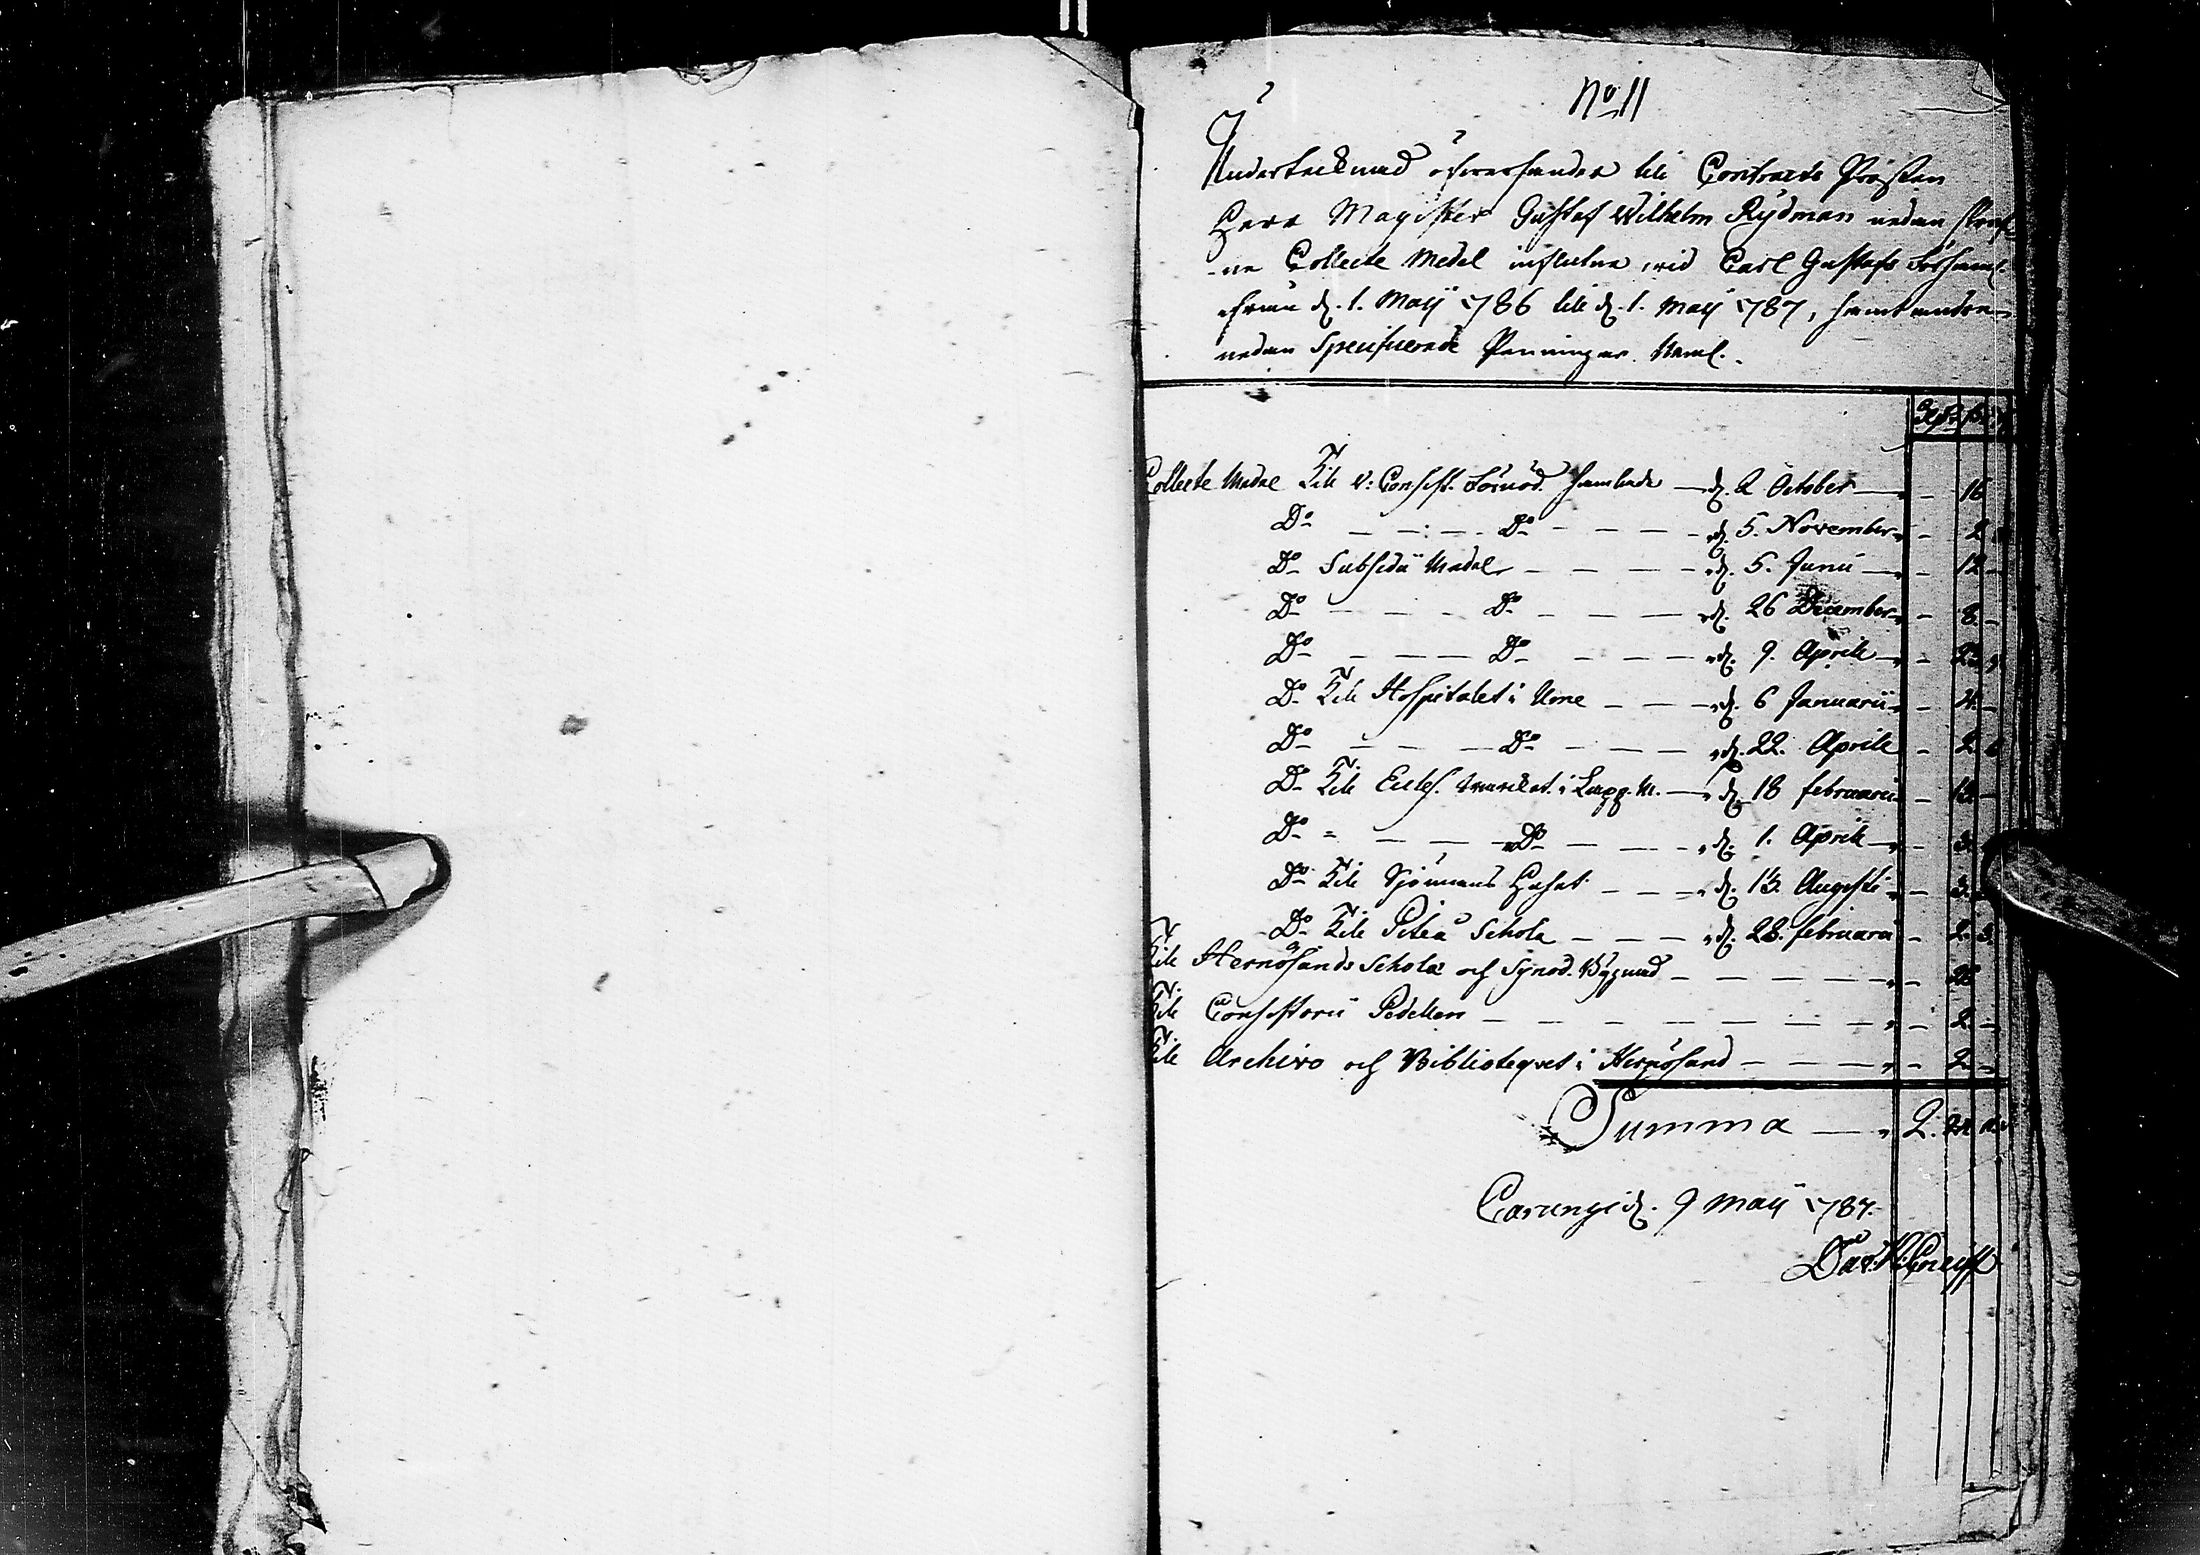 No 11
Undertecknad öfversänder till Contracts Prosten
Herr Magister Gustaf Wilhelm Rydman nedan skref-
-ne Collecte Medel influtne wid Carl Gustafs Församl.
ifrån d. 1. Maij 1786 till d. 1. Maij 1787, samt andra
nedan Specificerade Penningar Neml.
Collecte Medel Till V: Consist. Förord. samlade — d. 2 October — 16
Do — — Do — — d. 5. November — 2
Do Subsidii Medel — — d. 5. Junii — 12 —
Do — — Do — — d. 26 December — 8. —
Do — — Do — — d. 9. Aprile —
Do Till Hospitalet i Ume — — d. 6 Januarii — 4. —
Do — — Do — — d. 22. Aprile — 2.
Do Till Eccles. i Lapp. M. — d. 18 februarii —
Do — — Do — — d. 1. Aprile — 3.
Do Till Sjömans Huset — — d. 13. Augusti — 3.
Do Till Piteå Schola — — d. 28. februarii — 2. 3.
Till Hernösands Scholæ och Synod. Bygnad — —
Till Consistorii Pedellen — — 2 —
Till Archivo och Bibliotequet i Hernösand — — 2 —
Summa — 2.
Carungi d. 9 Maij 1787.